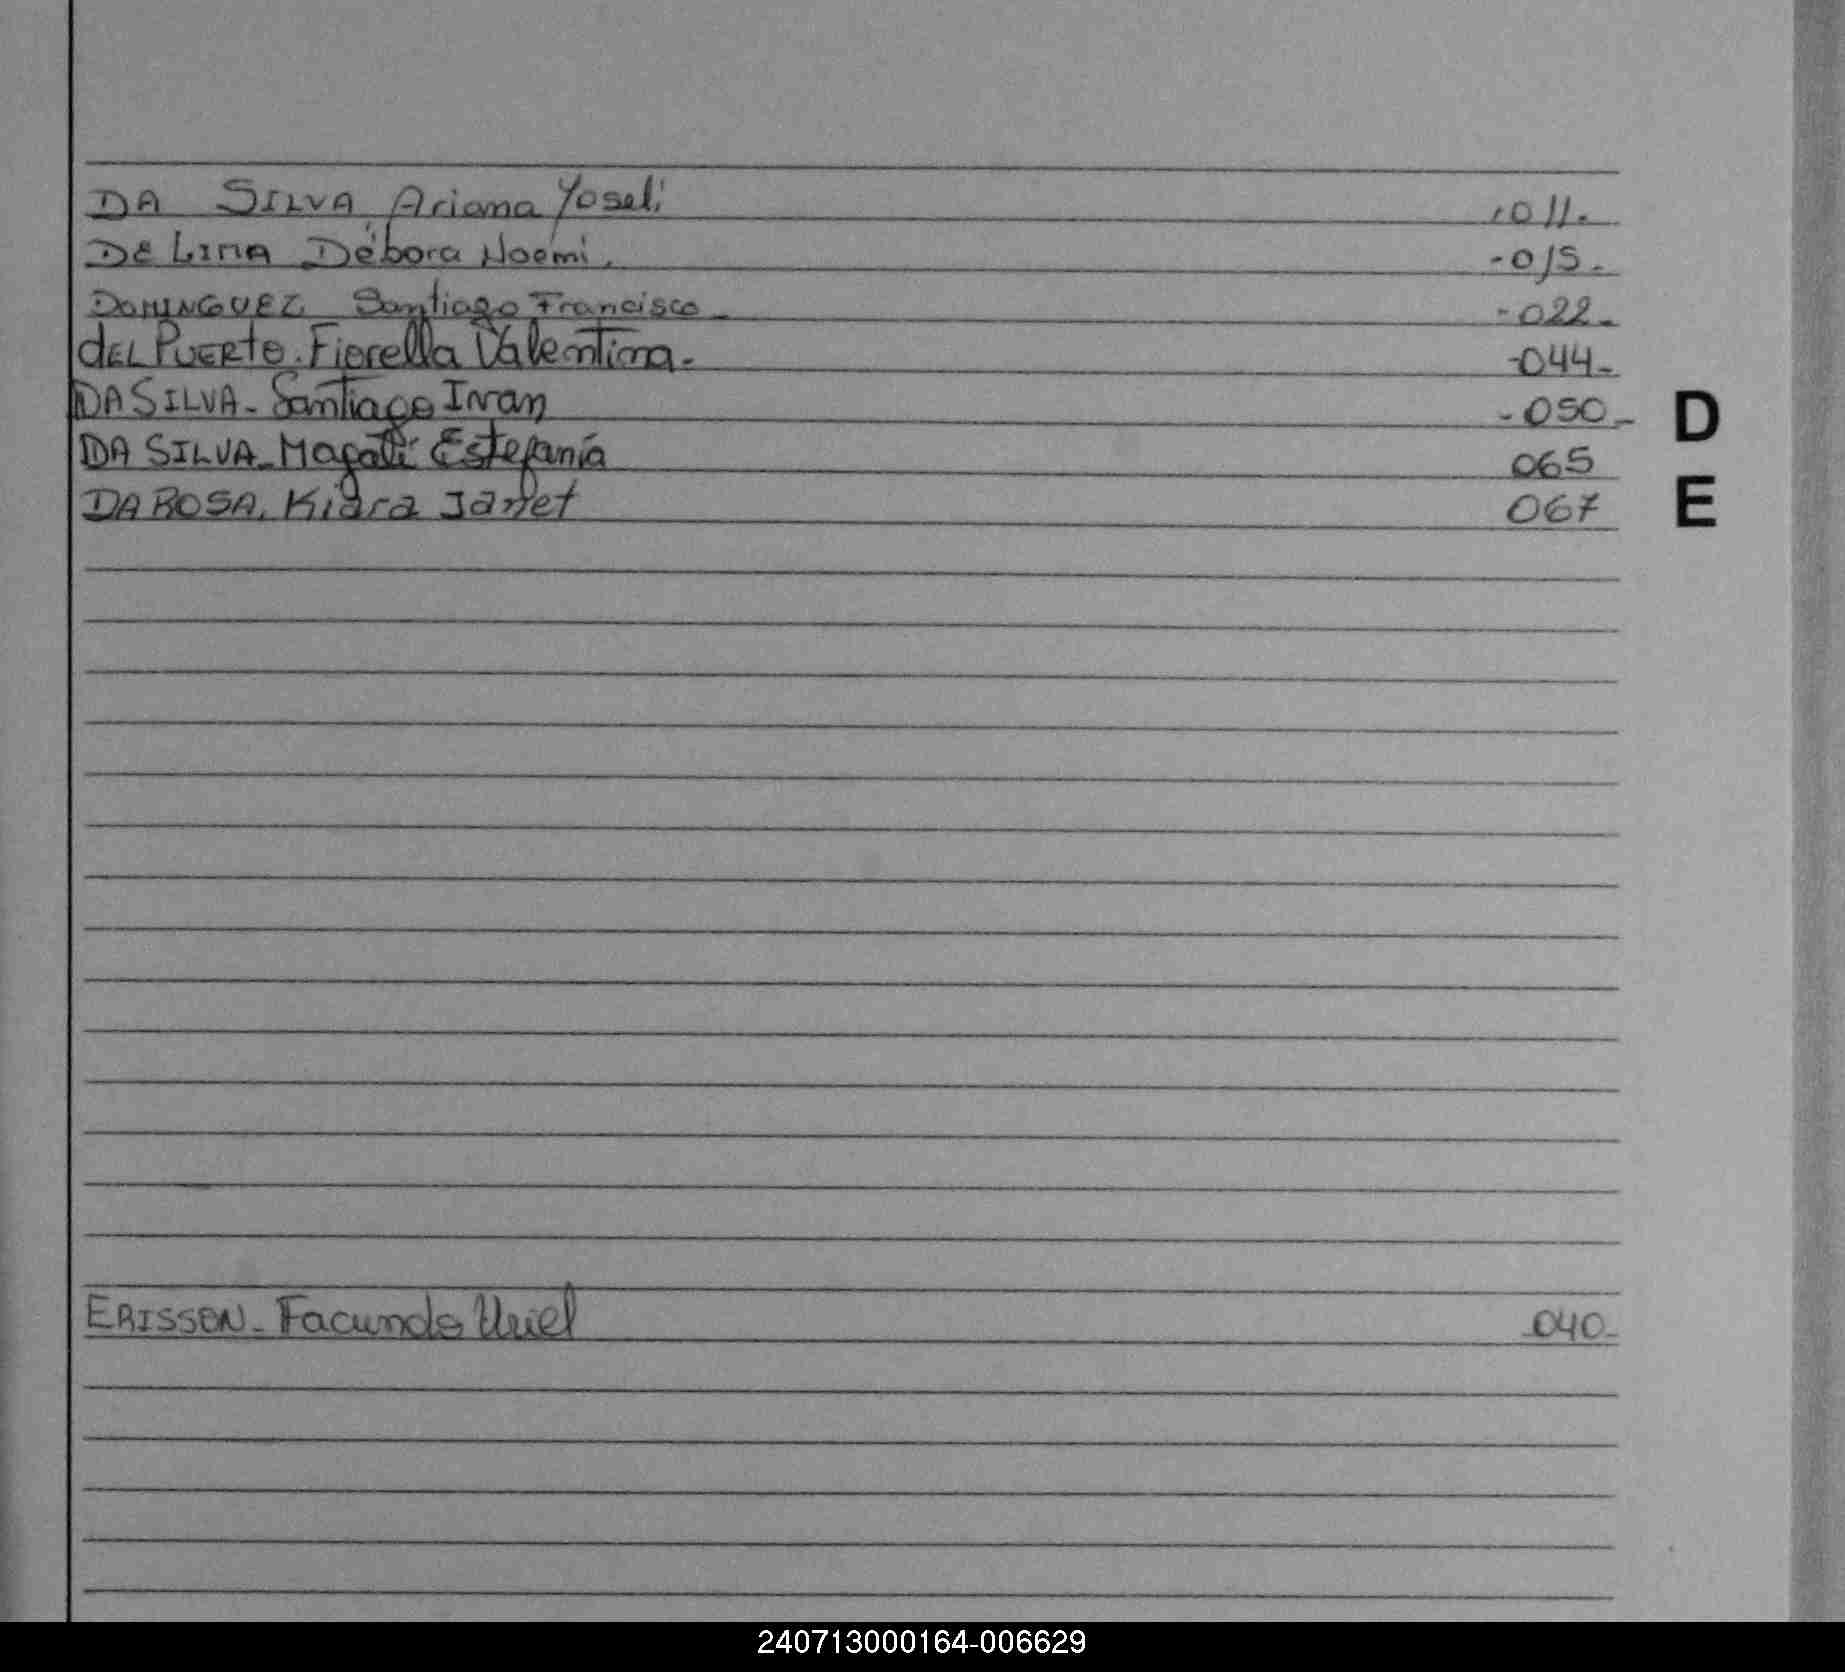 DA SILVA, Ariana Yoseli 011.
DE LIMA Débora Noemí. -015-
DOMINGUEZ, Santiago Francisco - -022-
dEL PUERTO. Fiorella Valentina. -044-
DA SILVA - Santiago Ivan -050-
DA SILVA - Magali Estefanía 065
D
DA ROSA, Kiara Janet 067
E
ERISSON - Facundo Uriel -040-
240713000164-006629